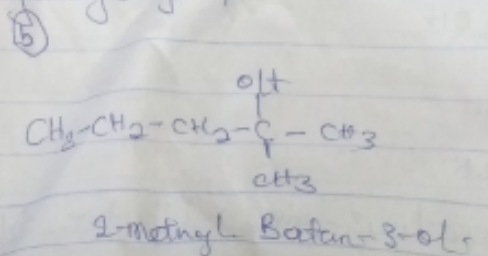 5
OH
CH3-CH2-CH2-C-CH3
CH3
2-methyl Butan-3-ol.